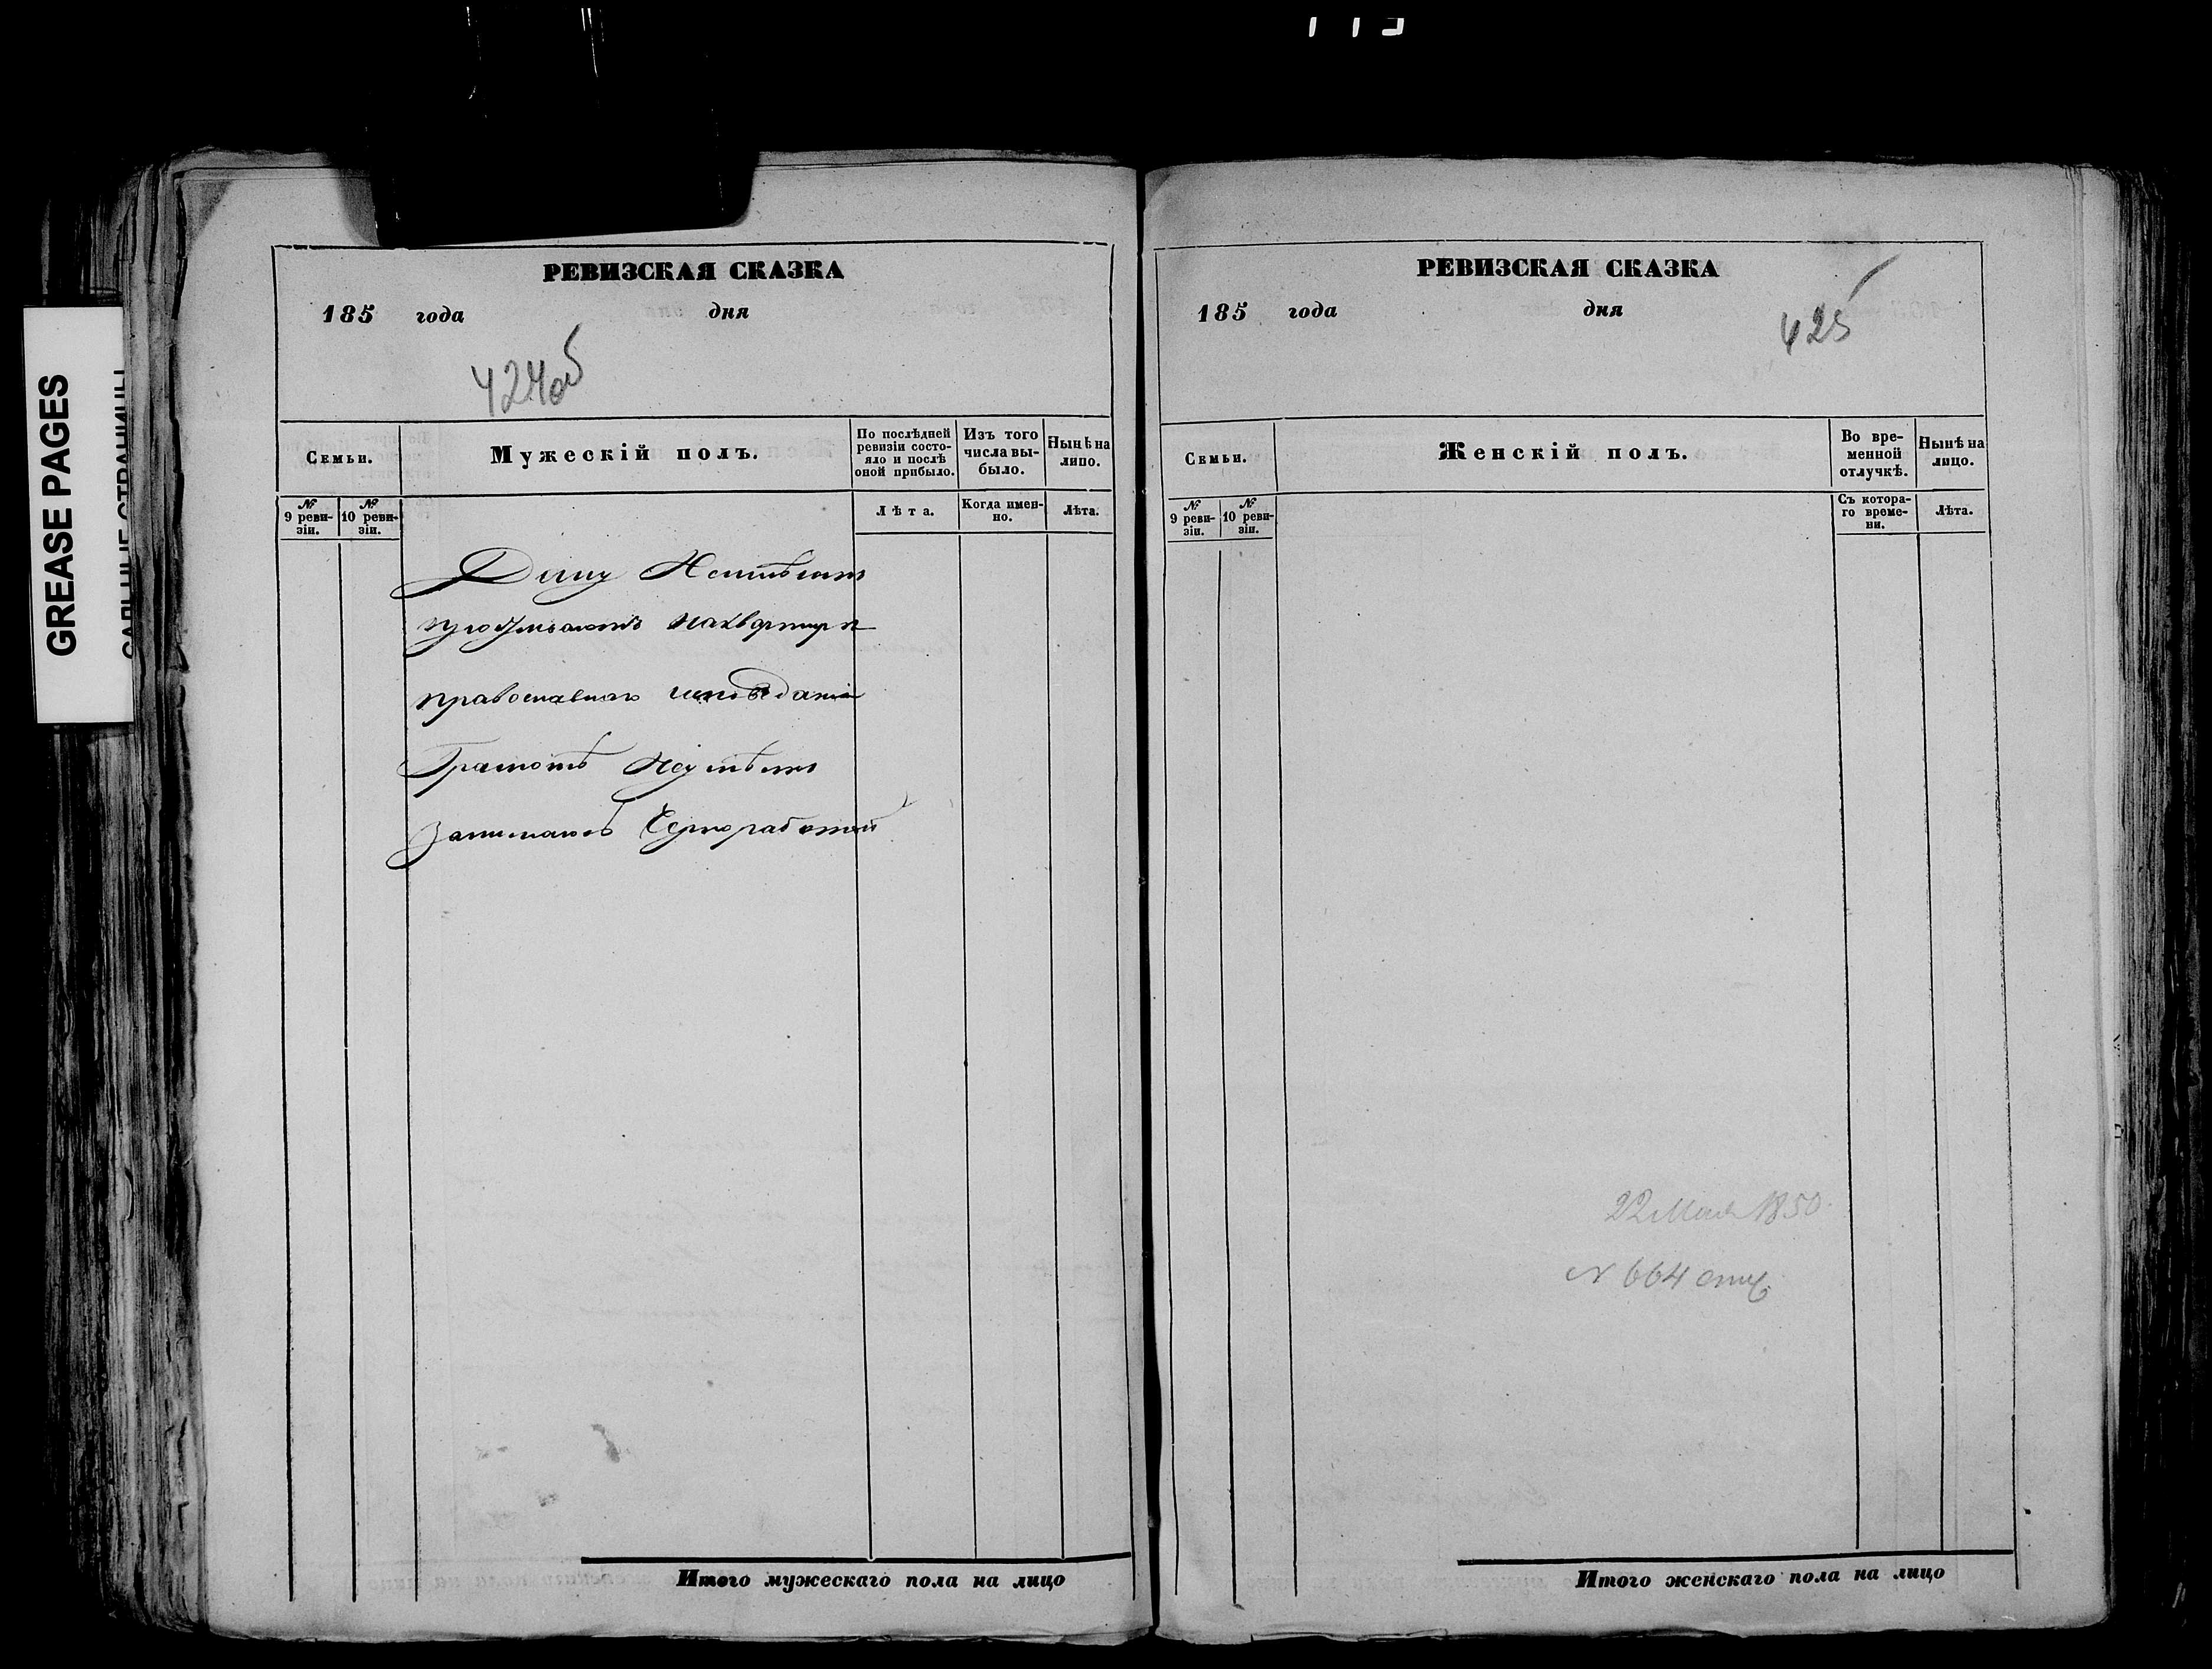 GREASE PAGES
РЕВИЗСКАЯ СКАЗКА
185 года дня
424об
Семьи.
Мужескій полъ.
По послѣдней ревизіи состояло и послѣ оной прибыло.
Изъ того числа выбыло.
Нынѣ на лицо.
№ 9 ревизіи.
№ 10 ревизіи.
Лѣта.
Когда именно.
Лѣта.
Дому Неимѣютъ
проживаютъ наквартирѣ
православнаго исповѣданія
Грамотѣ Неумѣютъ
Занимаютъ Чернοработой
Итого мужескаго пола на лицо
РЕВИЗСКАЯ СКАЗКА
185 года дня
425
Семьи.
Женскій полъ.
Во временной отлучкѣ.
Нынѣ на лицо.
№ 9 ревизіи.
№ 10 ревизіи.
Съ котораго времени.
Лѣта.
22 1850
N 664
Итого женскаго пола на лицо